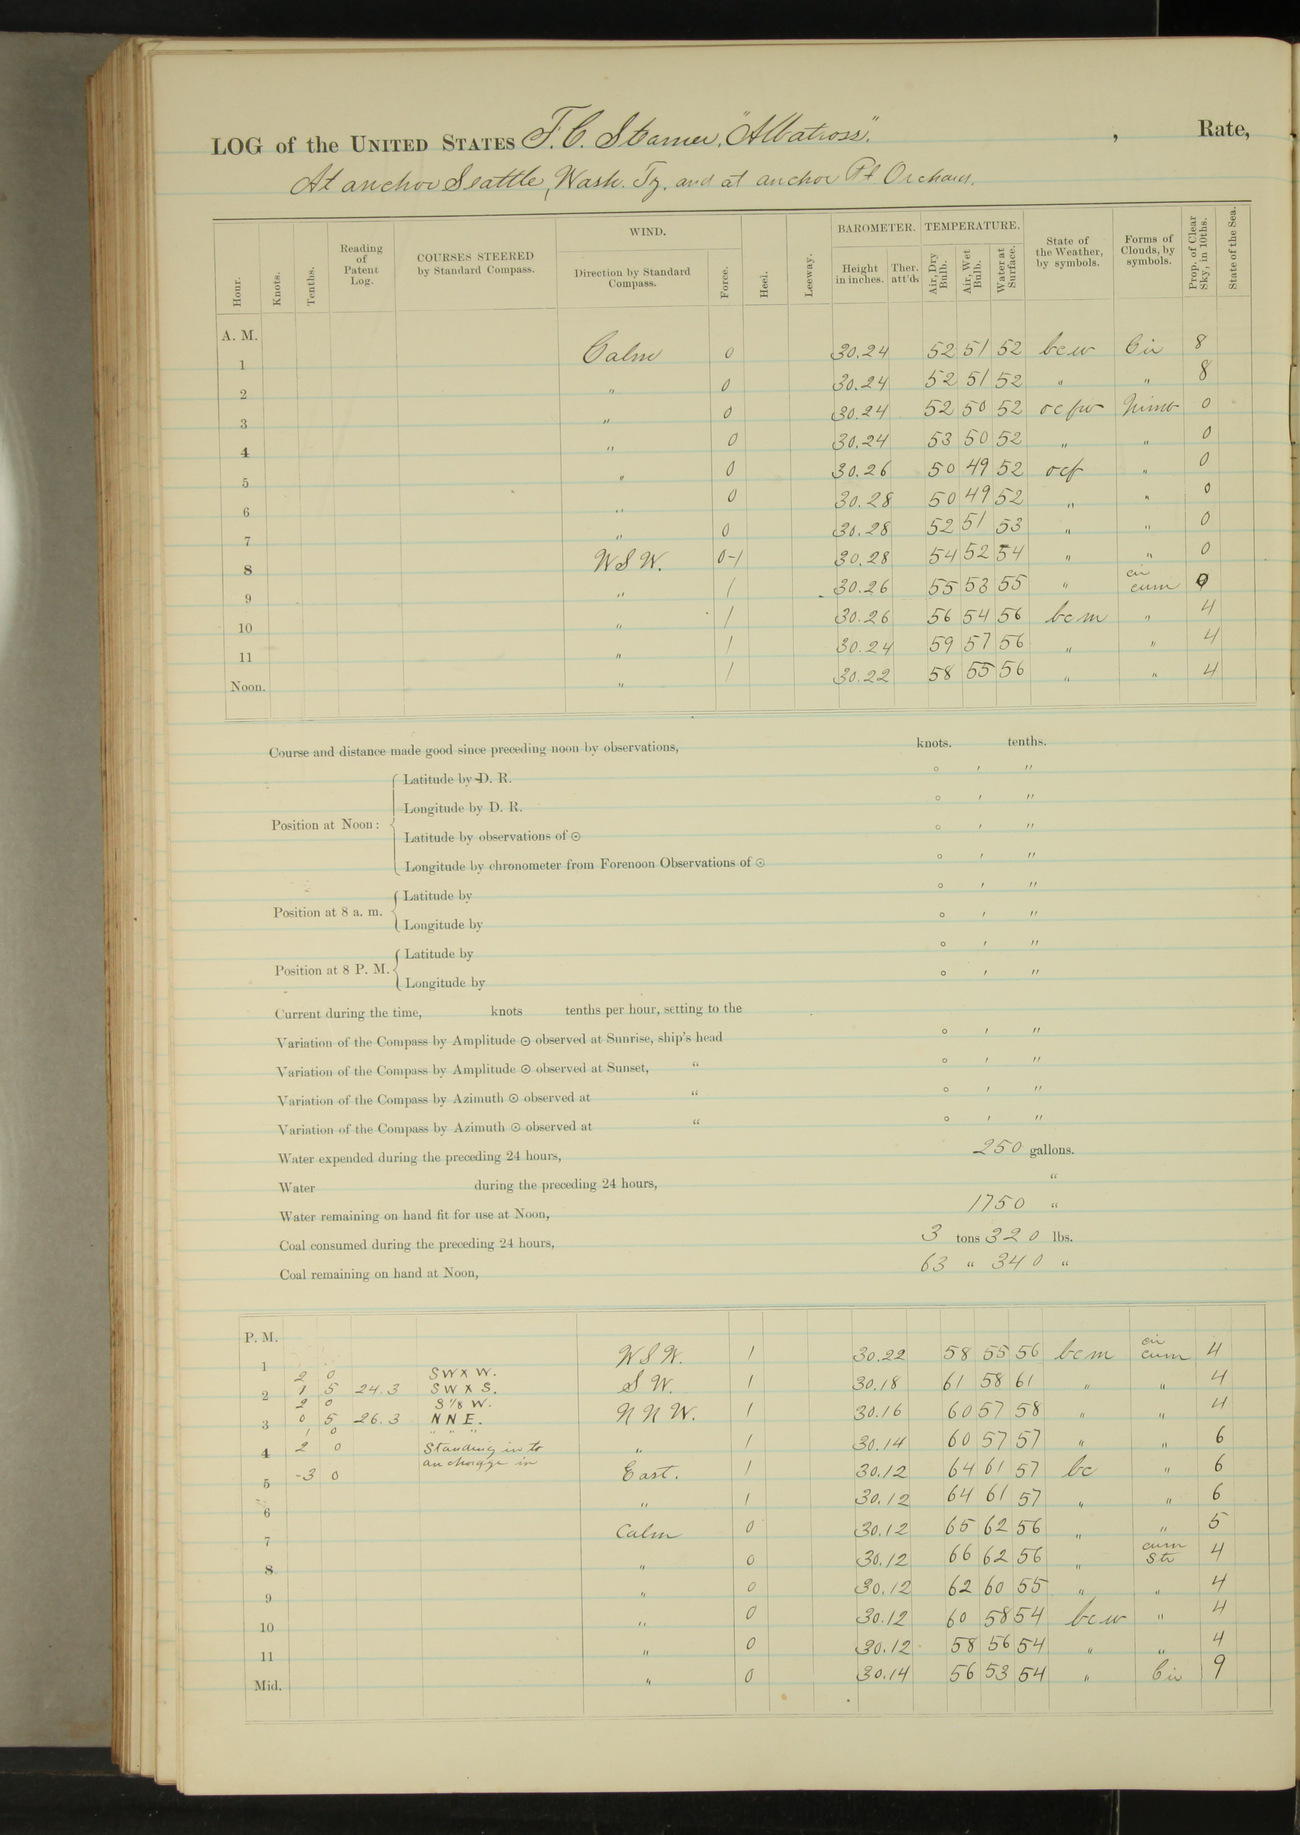 LOG of the UNITED STATES F. C. Steamer, "Albatross". , Rate,
At anchor Seattle, Wash. Ty. and at anchor Pt Orchard.
Hour. Knots. Tenths. Reading of Patent Log. COURSES STEERED by Standard Compass. WIND. Direction by Standard Compass. Force. Heel. Leeway. BAROMETER. Height in inches. Ther. att'd. TEMPERATURE. Air, Dry Bulb. Air, Wet Bulb. Water at Surface. State of the Weather, by symbols. Forms of Clouds, by symbols. Prop. of Clear Sky, in 10ths. State of the Sea.
A. M.
1 Calm 0 30.24 52 51 52 bcw Cir 8
2 " 0 30.24 52 51 52 " " 8
3 " 0 30.24 52 50 52 ocfw Nimb 0
4 " 0 30.24 53 50 52 " " 0
5 " 0 30.26 50 49 52 ocf " 0
6 " 0 30.28 50 49 52 " " 0
7 " 0 30.28 52 51 53 " " 0
8 WSW. 0-1 30.28 54 52 54 " " 0
9 " 1 30.26 55 53 55 " cir cum 0
10 " 1 30.26 56 54 56 bcm " 4
11 " 1 30.24 59 57 56 " " 4
Noon. " 1 30.22 58 55 56 " " 4
Course and distance made good since preceding noon by observations, knots. tenths.
Position at Noon: Latitude by D. R. ° ′ ″
Longitude by D. R. ° ′ ″
Latitude by observations of ☉ ° ′ ″
Longitude by chronometer from Forenoon Observations of ☉ ° ′ ″
Position at 8 a. m. Latitude by ° ′ ″
Longitude by ° ′ ″
Position at 8 P. M. Latitude by ° ′ ″
Longitude by ° ′ ″
Current during the time, knots tenths per hour, setting to the
Variation of the Compass by Amplitude ☉ observed at Sunrise, ship's head ° ′ ″
Variation of the Compass by Amplitude ☉ observed at Sunset, " ° ′ ″
Variation of the Compass by Azimuth ☉ observed at " ° ′ ″
Variation of the Compass by Azimuth ☉ observed at " ° ′ ″
Water expended during the preceding 24 hours, 250 gallons.
Water during the preceding 24 hours, "
Water remaining on hand fit for use at Noon, 1750 "
Coal consumed during the preceding 24 hours, 3 tons 320 lbs.
Coal remaining on hand at Noon, 63 " 340 "
P. M.
1 WSW. 1 30.22 58 55 56 bcm cir cum 4
2 0 SW x W.
2 1 5 24.3 SW x S. SW. 1 30.18 61 58 61 " " 4
2 0 S 1/8 W.
3 0 5 26.3 NNE. NNW. 1 30.16 60 57 58 " " 4
1 0 " " "
4 2 0 Standing in to " 1 30.14 60 57 57 " " 6
anchorage in
5 -3 0 East. 1 30.12 64 61 57 bc " 6
6 " 1 30.12 64 61 57 " " 6
7 Calm 0 30.12 65 62 56 " " 5
8 " 0 30.12 66 62 56 " cum Str 4
9 " 0 30.12 62 60 55 " " 4
10 " 0 30.12 60 58 54 bcw " 4
11 " 0 30.12 58 56 54 " " 4
Mid. " 0 30.14 56 53 54 " Cir 9